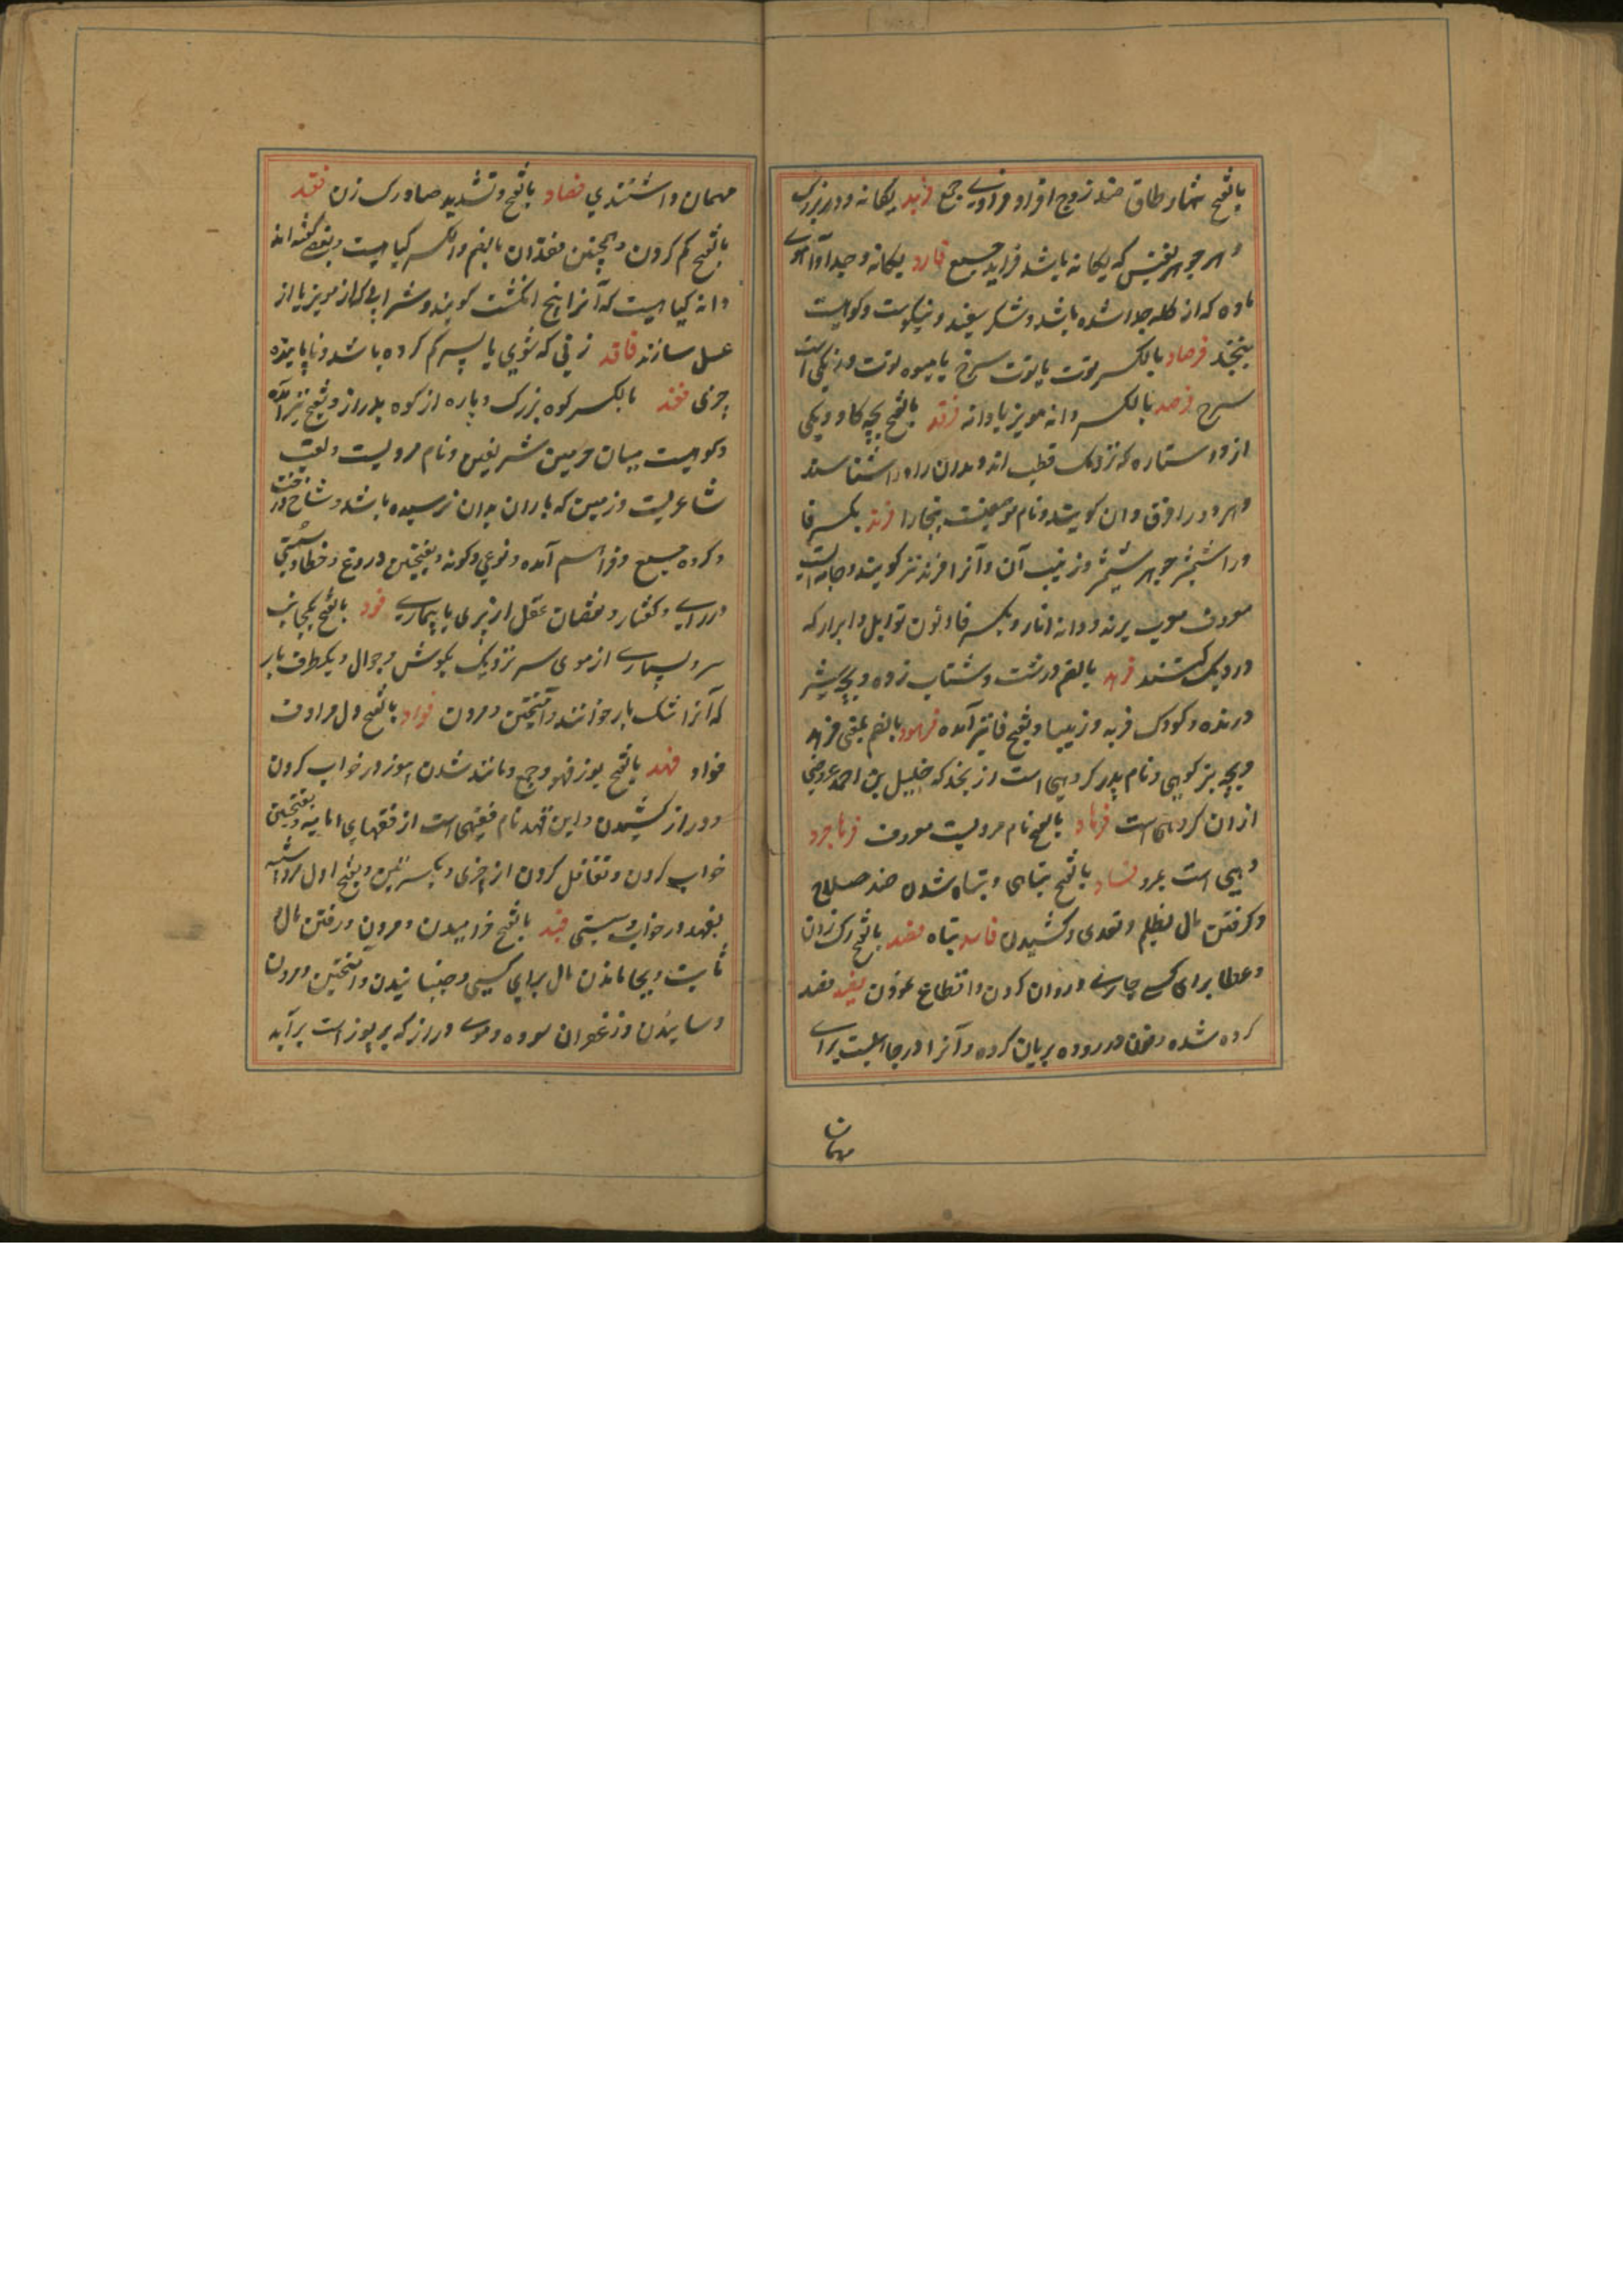 بالفتح شمار طاق ضد زوج افراد و فرادی جمع فرید یکانه و در بزرک
و هر جوهر نفیس که یکانه باشد فراید جمع فارد یکانه و جدا و آهوی
ماده که از کله جدا شده باشد و شکر سفید و نیکوست و کوهیست
بنجد فرصاد بالکسر توت یا توت سرخ یا میوه توت و رنکی است
سرخ فرصد بالکسر دانه مویز یا دانه فرقد بالفتح بچه کاو و یکی
از دو ستاره که نزدیک قطب اند و بدان راه را شناسند
و هر دو را فرقدان کویند و نام موضعیست ببخارا فرند بکسر فا
و را شمشیر جوهر شمشیر و زینت آن و آنرا افرند نیز کویند و جامه ایست
معروف معرب پرند و دانه انار و بکسر فا و نون توابل و ابزار که
در دیک کنند فرهد بالضم درشت و شتاب زده و بچه شیر
درنده و کودک فربه و زیبا و بفتح فا نیز آمده فرهود بالضم بمعنی فرهد
و بچه بز کوهی و نام پدر کروهی است از نجد که خلیل بن احمد عروضی
ازان کروه است فرهاد بالفتح نام مردیست معروف فرهاجرد
دهی است بمرو فساد بالفتح تباهی و تباه شدن ضد صلاح
و کرفتن مال بظلم و تعدی و کشیدن فاسد تباه فصد بالفتح رک زدن
و عطا برای کسی جاری و روان کردن و انقطاع نمودن فصید فصد
کرده شده و خون در روده بریان کرده و آنرا در جاهلیت برای
مهمان
مهمان داشتندی فصاد بالفتح و تشدید صاد رک زن فقد
بالفتح کم کردن و همچنین فقدان بالضم و الکسر کیاهیست و بعضی کفته اند
دانه کیاهیست که آنرا پنج انکشت کویند و شرابی که از مویز یا از
عسل سازند فاقد زنی که شوی یا پسر کم کرده باشد و نایابنده
چیزی فند بالکسر کوه بزرک و پاره از کوه بدراز و بفتح نیز آمده
و کوهیست میان حرمین شریفین و نام مردیست و لقب
شاعریست و زمین که باران بدان نرسیده باشد و شاخ درخت
و کروه جمع و فراهم آمده و نوعی و کونه و بفتحتین دروغ و خطا و سستی
در رای و کفتار و نقصان عقل از پیری یا بیماری فود بالفتح یکجانب
سر و بسیاری از موی سر نزدیک بکوش و جوال و یکطرف بار
که آنرا تنک بار خوانند و آمیختن و مردن فواد بالفتح دل مرادف
فؤاد فهد بالفتح یوز فهود جمع و مانند شدن بیوز در خواب کردن
و دراز کشیدن و ابن فهد نام فقیهی است از فقهای امامیه و بفتحتین
خواب کردن و تغافل کردن از چیزی و بکسرتین و بفتح اول مرد ماننده
بفهد در خواب و سستی فید بالفتح خرامیدن و مردن و رفتن مال و
ثابت و بجا ماندن مال برای کسی و جنبانیدن و آمیختن و مردن
و سائیدن و زعفران سوده و موی دراز که بر پوز است برآید